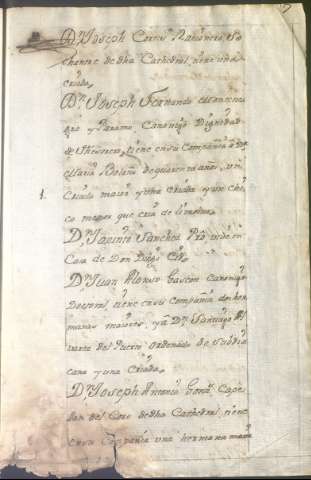 Dn. Joseph Cortes Racionero, So
chantre de dha Cathedral, tiene una
criada.
Dn. Joseph Fernando
y Paramo, Canonigo Dignidad
de Thesorero, tiene en su Compañia a Dn.
de quarenta años, un
Criado maior y otra criada y un chi
co menor que
Dn. Jacinto Sanchez Pro. vive en
Casa de Don Diego
Dn. Juan Alonso Gascon Canonigo
Doctoral, tiene en su Compañia dos her
manas maiores, y a Dn. Santiago Al
varez del Puerto ordenado de Subdia
cono y una Criada.
Dn. Joseph Antonio Gonz. Cape
llan del Coro de dha Cathedral, tiene
en su Compañia una hermana maior
1.